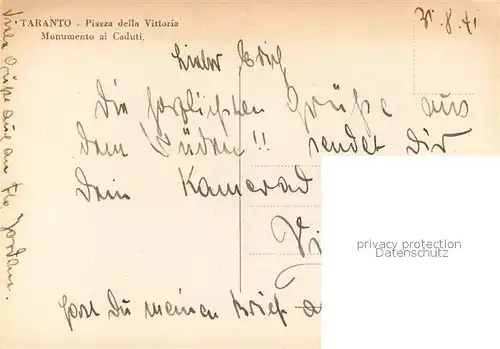 TARANTO - Piazza della Vittoria
Monumento ai Caduti.
8. 41
Lieber Erich
Die herzlichsten Grüße aus
dem Süden!! sendet Dir
Dein Kamerad
Vi
hast Du meinen Brief
Viele Grüße auch an
privacy protection
Datenschutz